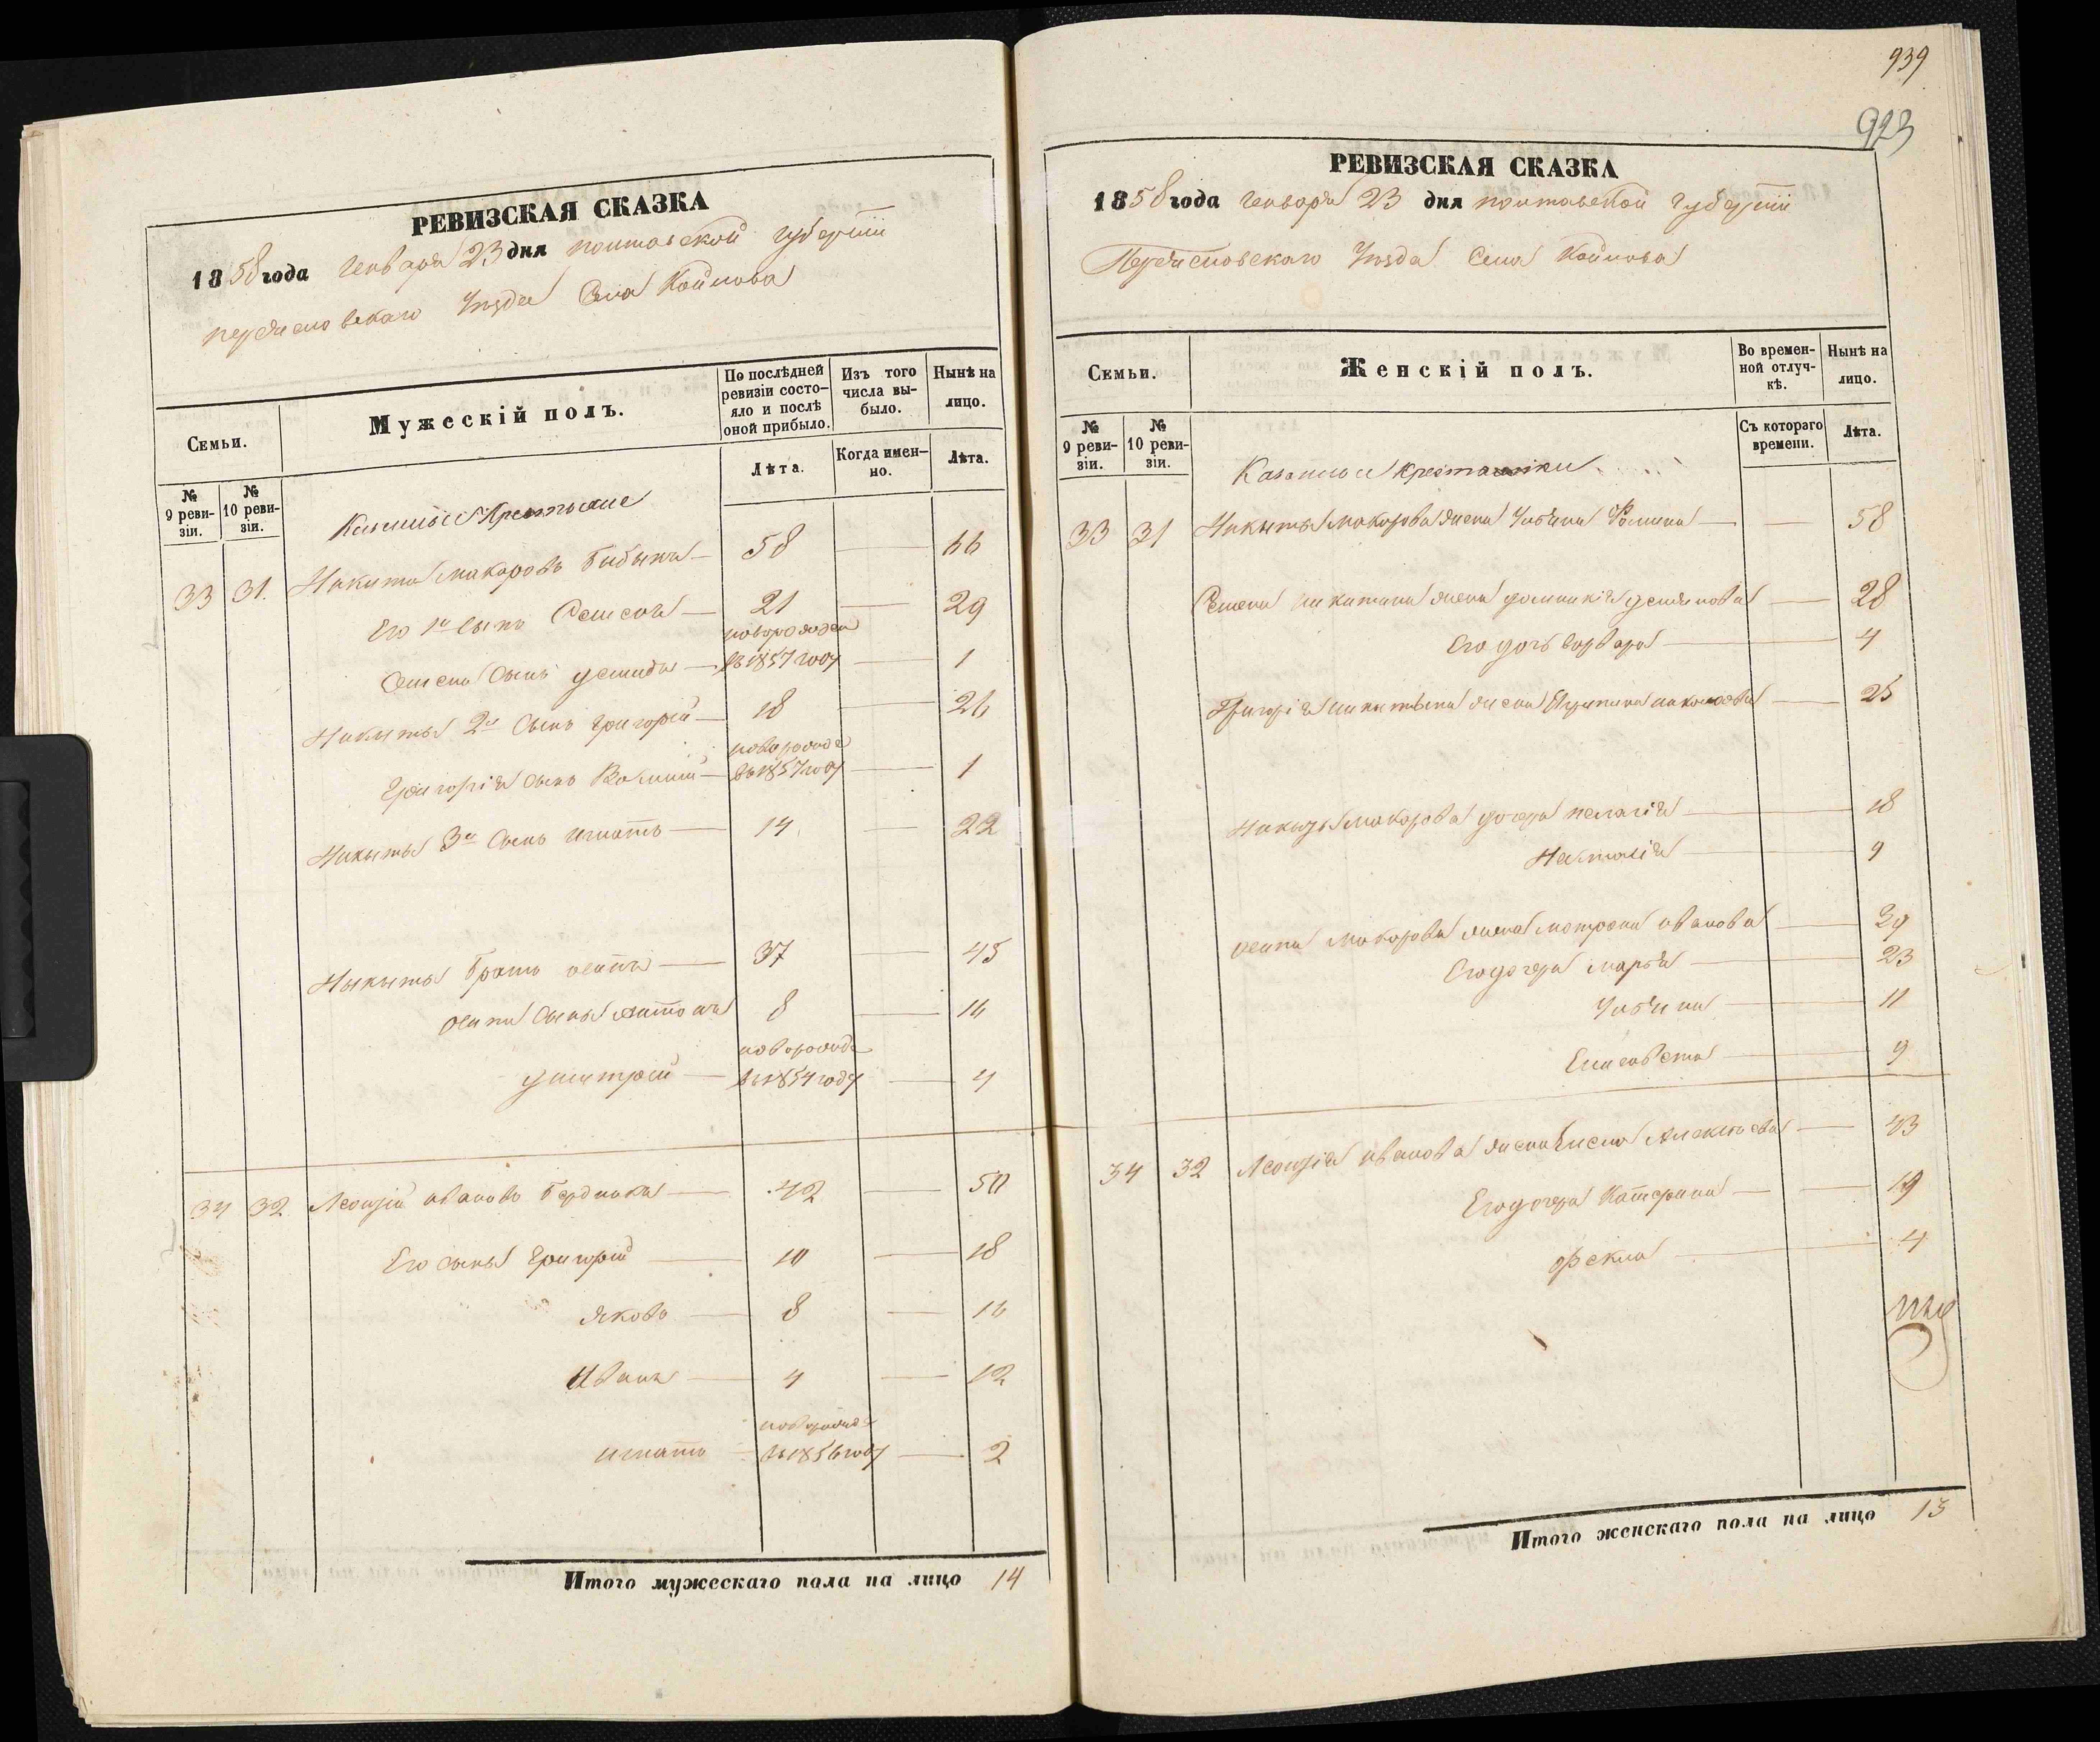 РЕВИЗСКАЯ СКАЗКА
1858 года Генваря 23 дня полтавской губернии
переяславскаго Уѣзда Села Койлова
Семьи.
Мужескій полъ.
По послѣдней ревизіи состо-
яло и послѣ оной прибыло.
Изъ того числа вы-
было.
Нынѣ на лицо.
№ 9 реви-
зіи.
№ 10 реви-
зіи.
Лѣта.
Когда имен-
но.
Лѣта.
Казенные Крестьяне
33 31. Никита Макаровъ 58 66
Его 1й сынъ Семенъ 21 29
новорожден
Семена сынъ демидъ въ 1857 году 1
Никиты 2й сынъ григорій 18 26
новорожде
григорія сынъ въ 1857 году 1
Никиты 3й сынъ игнатъ 14 22
Никиты братъ осипъ 37 45
осипа сынъ антонъ 8 16
новорожде
дмитрій въ 1854 году 4
34 32 Леонтій ивановъ 42 50
Его сынъ григорій 10 18
яковъ 8 16
Иванъ 4 12
новорожде
игнатъ въ 1856 году 2
Итого мужескаго пола на лицо 14
939
923
РЕВИЗСКАЯ СКАЗКА
1858 года Генваря 23 дня полтавской губерніи
Переясловскаго Уѣзда Села Койлова
Семьи.
Женскій полъ.
Во времен-
ной отлуч-
кѣ.
Нынѣ на лицо.
№ 9 реви-
зіи.
№ 10 реви-
зіи.
Съ котораго времени.
Лѣта.
Казенные крестьянки
33 31 Никиты Макарова жена Ульяна Фомина 58
Семена никитина жена домникія демянова 28
Его дочь варвара 4
Григорія никитина жена 25
Никиты Макарова дочери пелагія 18
Наталія 9
осипа Макарова жена мотрона иванова 39
Его дочери марья 23
Ульяна 11
Елисавета 9
34 32 Леонтія иванова жена Алексѣева 43
Его дочери Катерина 19
фекла 4
Итого женскаго пола на лицо 13